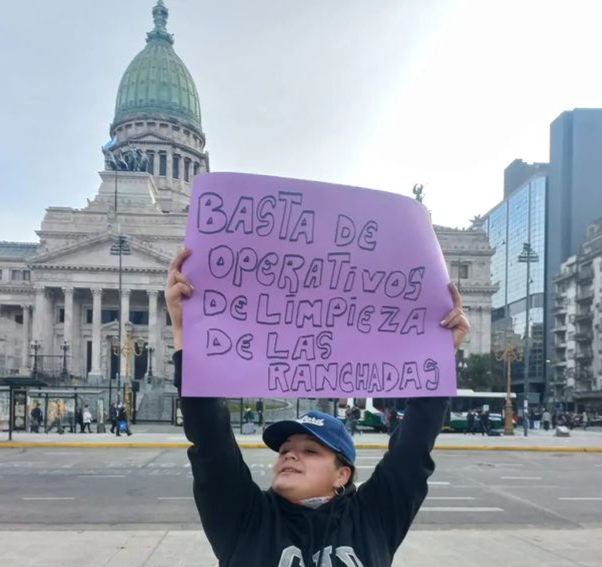 BASTA DE
OPERATIVOS
DE LIMPIEZA
DE LAS
RANCHADAS